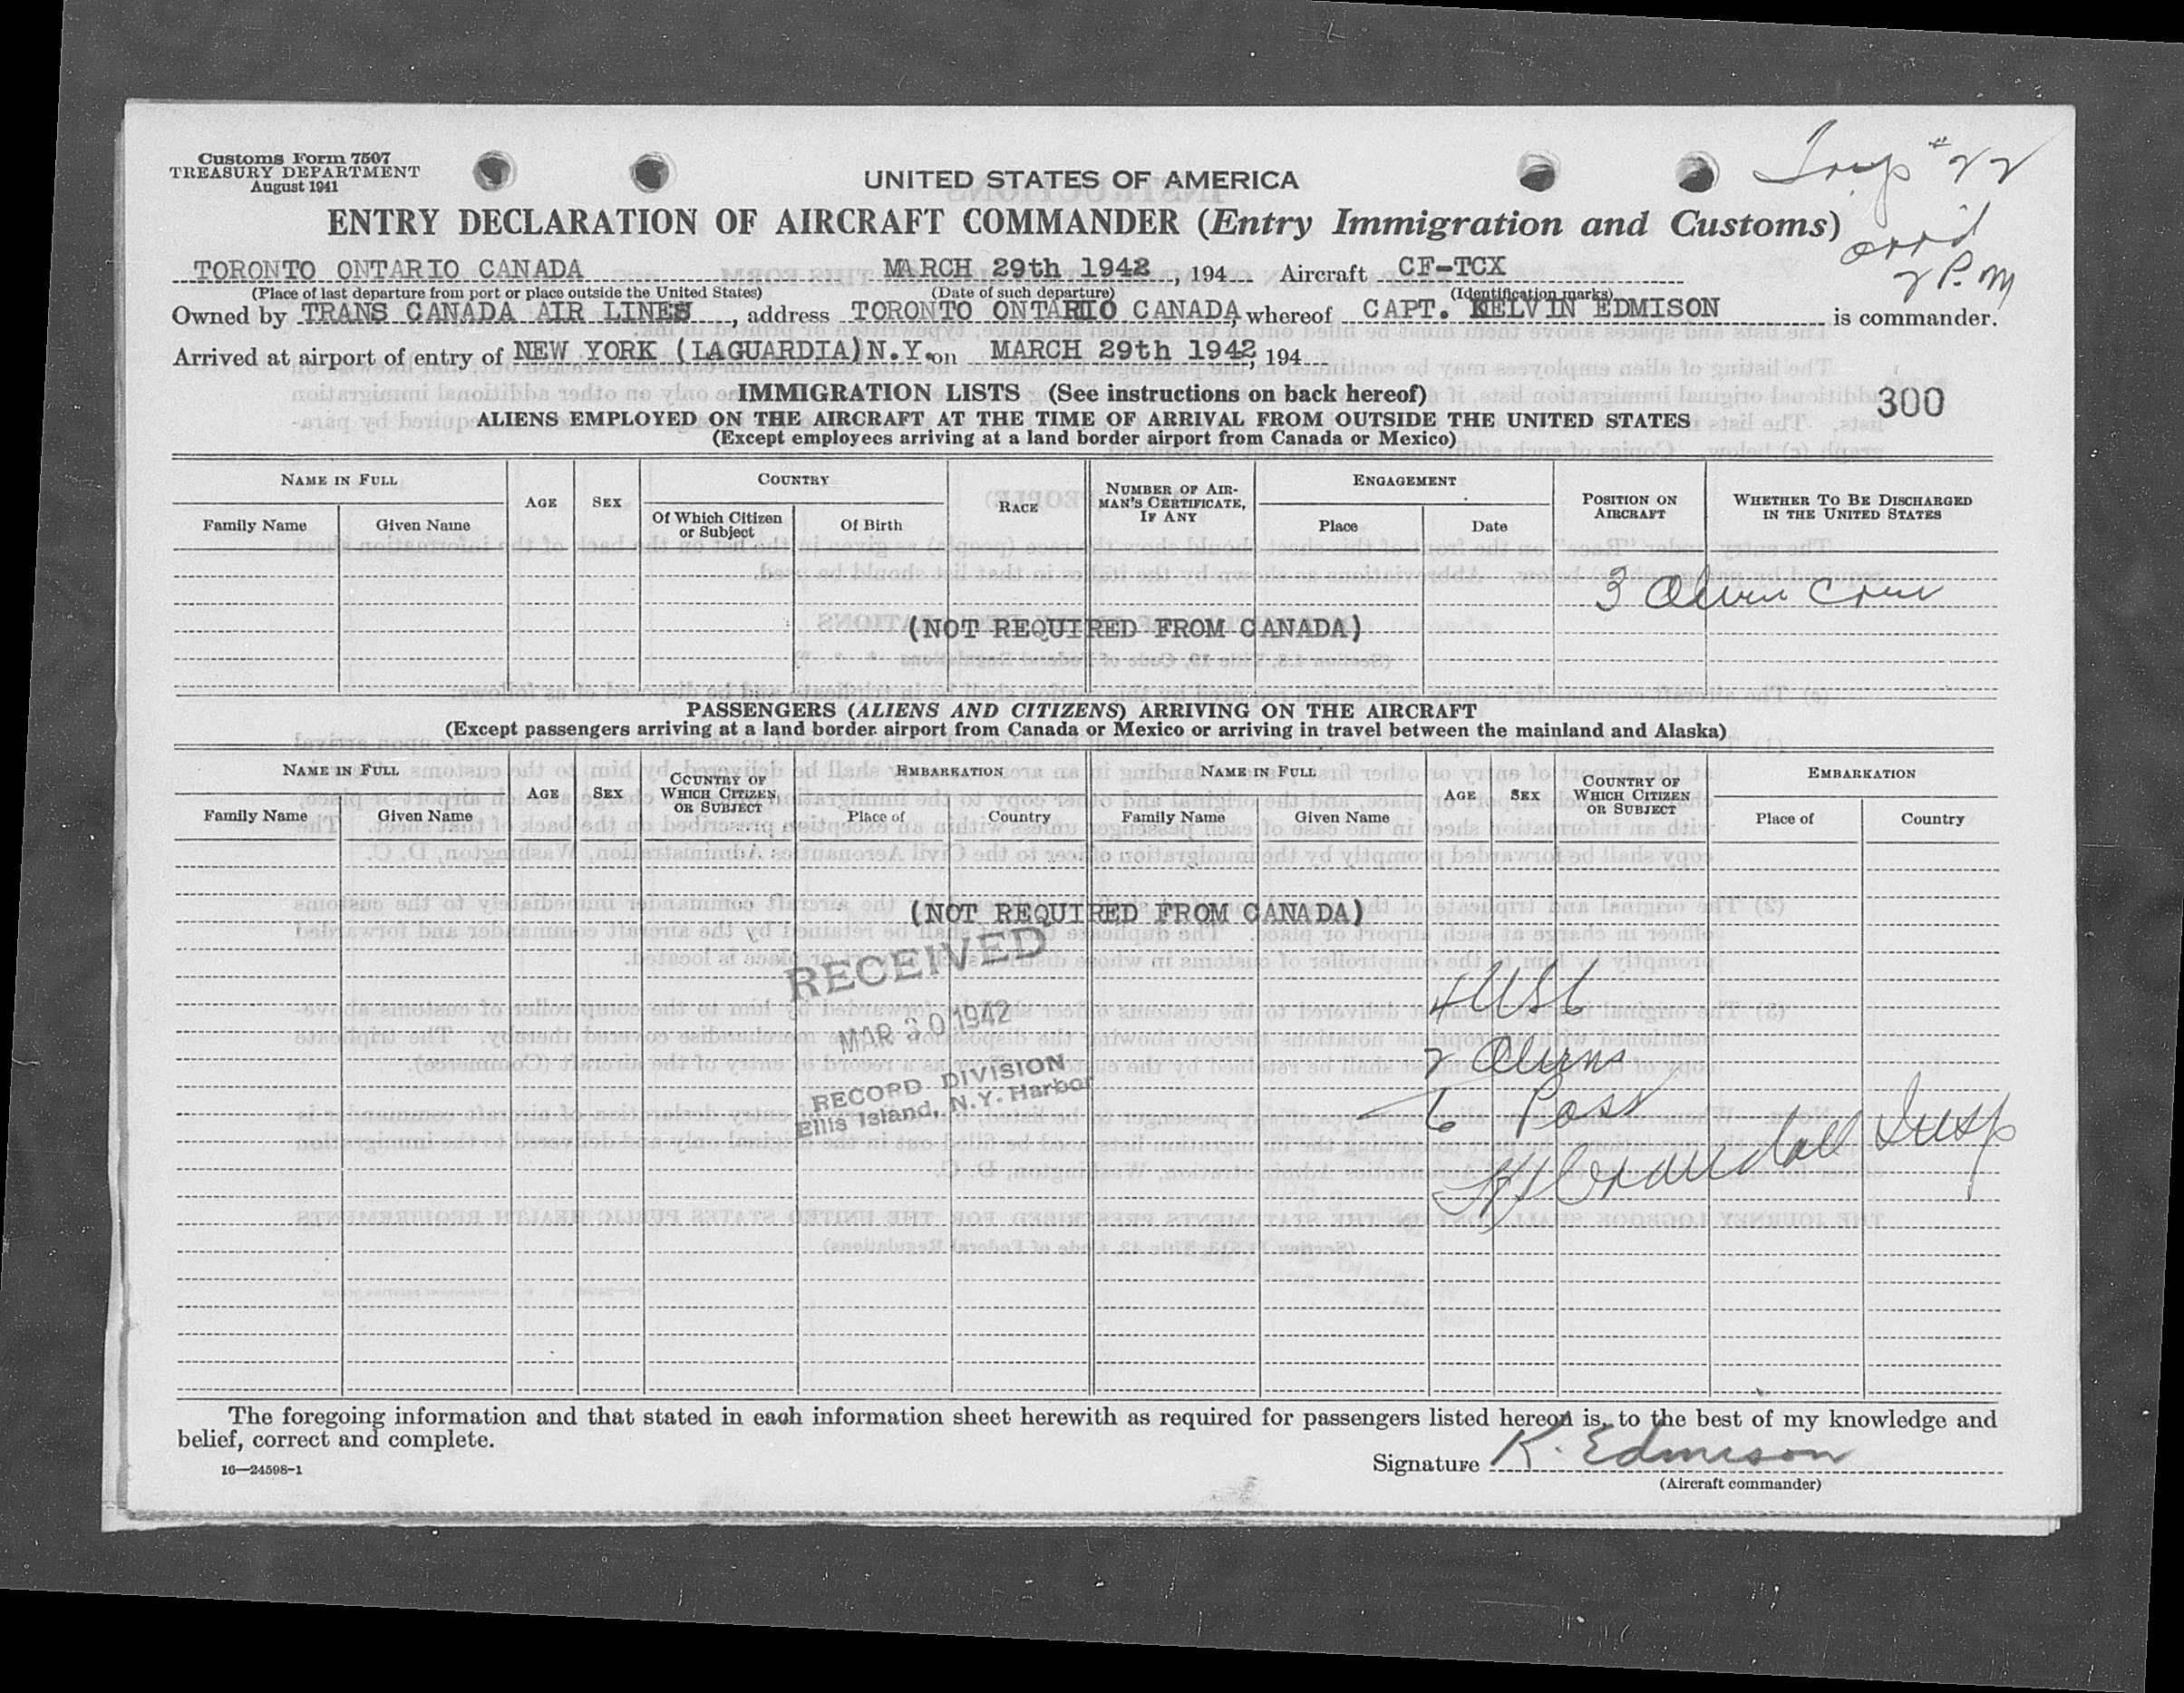 Customs Form 7507
TREASURY DEPARTMENT
August 1941
UNITED STATES OF AMERICA
Trip #22
ENTRY DECLARATION OF AIRCRAFT COMMANDER (Entry Immigration and Customs)
arrd
2 P.M
TORONTO ONTARIO CANADA MARCH 29th 1942, 194 Aircraft CF-TCX
(Place of last departure from port or place outside the United States) (Date of such departure) (Identification marks)
Owned by TRANS CANADA AIR LINES, address TORONTO ONTARIO CANADA, whereof CAPT. KELVIN EDMISON is commander.
Arrived at airport of entry of NEW YORK (LAGUARDIA) N.Y. on MARCH 29th 1942, 194
IMMIGRATION LISTS (See instructions on back hereof)
300
ALIENS EMPLOYED ON THE AIRCRAFT AT THE TIME OF ARRIVAL FROM OUTSIDE THE UNITED STATES
(Except employees arriving at a land border airport from Canada or Mexico)
NAME IN FULL AGE SEX COUNTRY RACE NUMBER OF AIRMAN'S CERTIFICATE, IF ANY ENGAGEMENT POSITION ON AIRCRAFT WHETHER TO BE DISCHARGED IN THE UNITED STATES
Family Name Given Name Of Which Citizen or Subject Of Birth Place Date
3 Alien Crew
(NOT REQUIRED FROM CANADA)
PASSENGERS (ALIENS AND CITIZENS) ARRIVING ON THE AIRCRAFT
(Except passengers arriving at a land border airport from Canada or Mexico or arriving in travel between the mainland and Alaska)
NAME IN FULL AGE SEX COUNTRY OF WHICH CITIZEN OR SUBJECT EMBARKATION NAME IN FULL AGE SEX COUNTRY OF WHICH CITIZEN OR SUBJECT EMBARKATION
Family Name Given Name Place of Country Family Name Given Name Place of Country
(NOT REQUIRED FROM CANADA)
RECEIVED
MAR 30 1942
RECORD DIVISION
Ellis Island, N.Y. Harbor
4 USC
2 Aliens
6 Pass
Crandall Insp
The foregoing information and that stated in each information sheet herewith as required for passengers listed hereon is, to the best of my knowledge and
belief, correct and complete.
Signature K. Edmison
16—24598-1
(Aircraft commander)